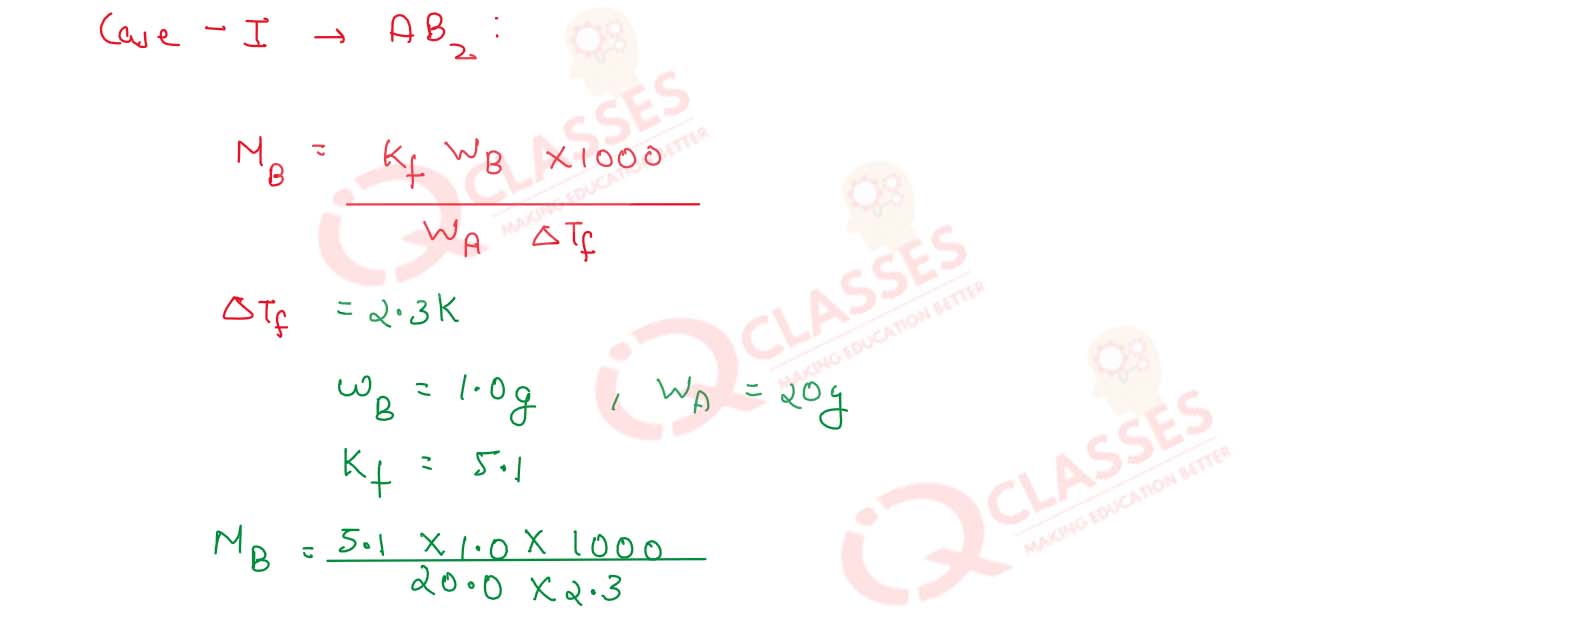 Case - I → AB₂ :
M_B = K_f W_B × 1000
W_A ΔT_f
ΔT_f = 2.3K
W_B = 1.0g , W_A = 20g
K_f = 5.1
M_B = 5.1 × 1.0 × 1000
20.0 × 2.3
iQ CLASSES
MAKING EDUCATION BETTER
iQ CLASSES
MAKING EDUCATION BETTER
iQ CLASSES
MAKING EDUCATION BETTER